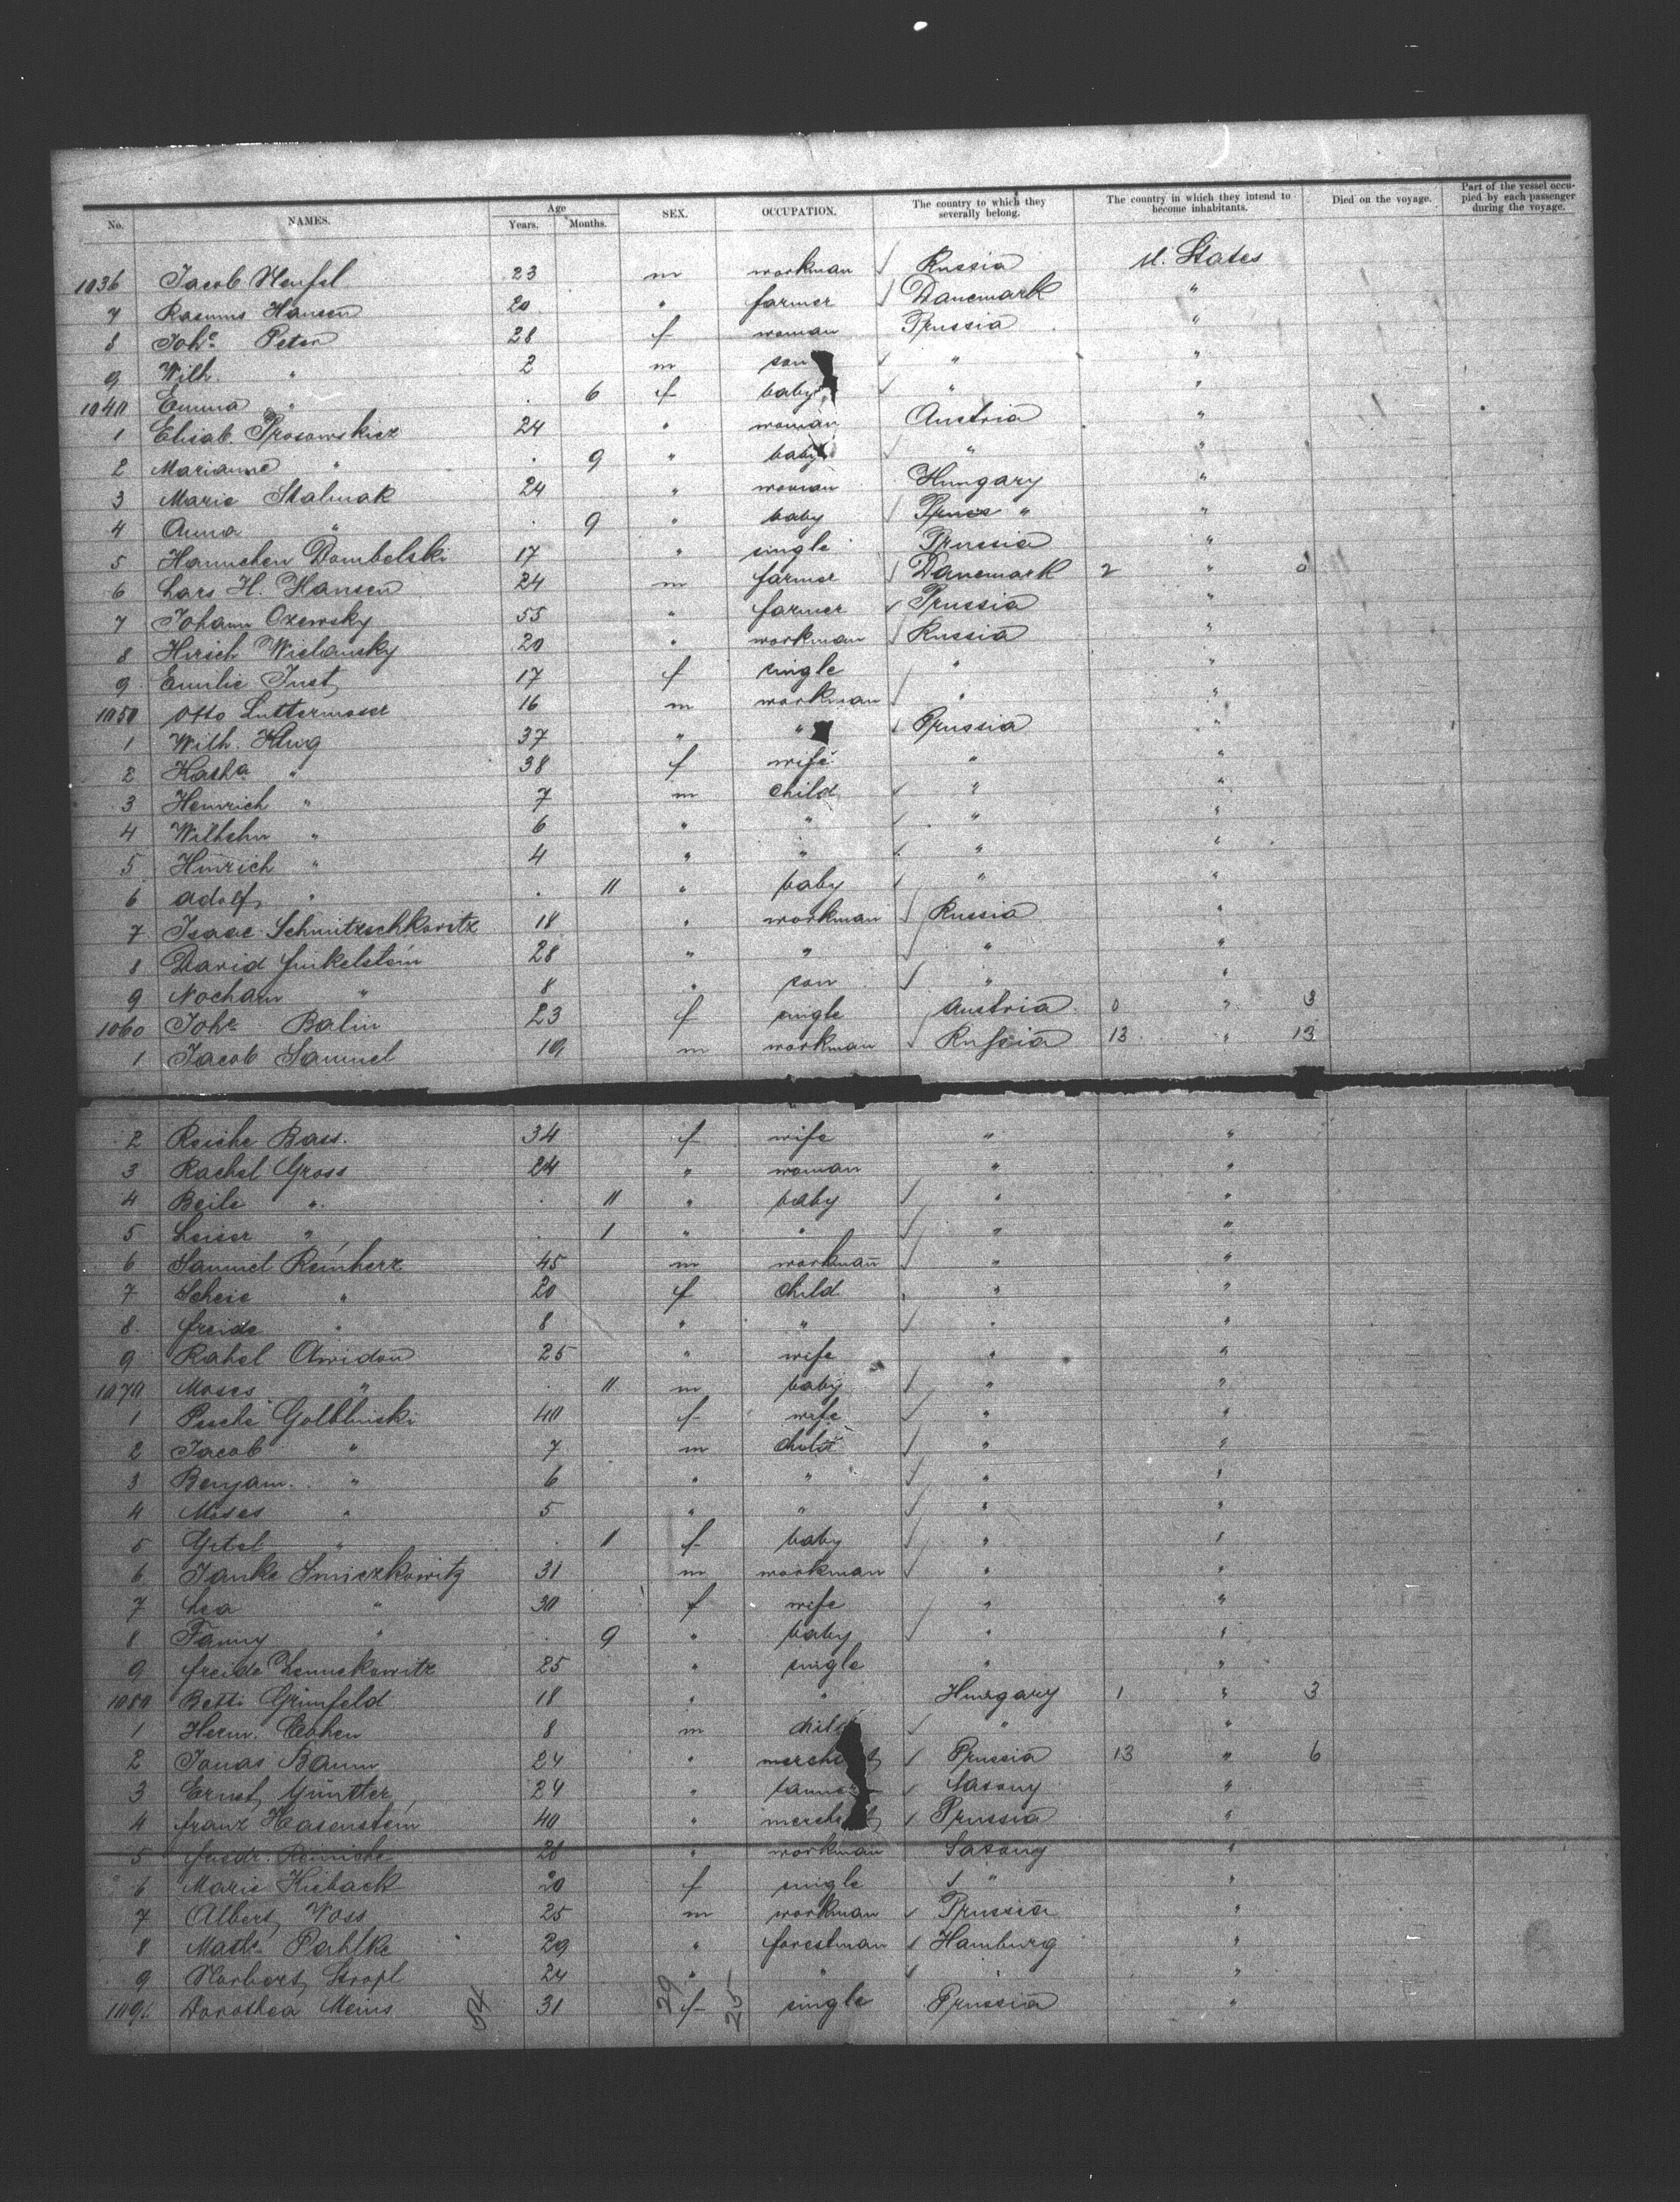 No. NAMES. Age Years. Months. SEX. OCCUPATION. The country to which they severally belong. The country in which they intend to become inhabitants. Died on the voyage. Part of the vessel occupied by each passenger during the voyage.
1036 Jacob 23 m workman Russia U. States
7 Rasmus Hansen 20 " farmer Danemark "
8 Johe Peter 28 f woman Prussia "
9 Wilh. " 2 m son " "
1040 Emma " . 6 f baby " "
1 Elisab. 24 " woman Austria "
2 Marianne " . 9 " baby " "
3 Marie Stalmak 24 " woman Hungary "
4 Anna " . 9 " baby " "
5 Hannchen Dombelski 17 " single Prussia "
6 Lars H. Hansen 24 m farmer Danemark 2 " 0
7 Johann Oxewsky 55 " farmer Prussia "
8 Hirsch Wielansky 20 " workman Russia "
9 Emilie Just 17 f single " "
1050 Otto Luttermoser 16 m workman " "
1 Wilh. Klug 37 " " Prussia "
2 Kasha " 38 f wife " "
3 Heinrich " 7 m child " "
4 Wilhelm " 6 " " " "
5 Hinrich " 4 " " " "
6 Adolf " . 11 " baby " "
7 Isaac Schmitzschkowitz 18 " workman Russia "
8 David Finkelstein 28 " " " "
9 Nocham " 8 " son " "
1060 Johe Balin 23 f single Austria 0 " 3
1 Jacob Samuel 19 m workman Russia 13 " 13
2 Reiche Bass. 34 f wife " "
3 Rachel Gross 24 " woman " "
4 Beile " . 11 " baby " "
5 Leiser " . 1 " " " "
6 Samuel Reinherz 45 m workman " "
7 Scheie " 20 f child " "
8 Freide " 8 " " " "
9 Rahel Awidon 25 " wife " "
1070 Moses " . 11 m baby " "
1 Pesche 40 f wife " "
2 Jacob " 7 m child " "
3 Benjam. " 6 " " " "
4 Moses " 5 " " " "
5 Gitel " . 1 f baby " "
6 Janke Smiczkowitz 31 m workman " "
7 Lea " 30 f wife " "
8 Fanny " . 9 " baby " "
9 Freide 25 " single " "
1080 Betti Grünfeld 18 " " Hungary 1 " 3
1 Herm. Cohen 8 m child " "
2 Jonas Baum 24 " merchant Prussia 13 " 6
3 Ernst Günther 24 " Saxony "
4 Franz Hasenstein 40 " merchant Prussia "
5 Friedr. Reiniche 28 " workman Saxony "
6 Marie Kieback 20 f single " "
7 Albert Voss 25 m workman Prussia "
8 Pahlke 29 " forestman Hamburg "
9 Norbert 24 " " . "
109 Dorothea Meins 54 31 29 f 25 single Prussia "